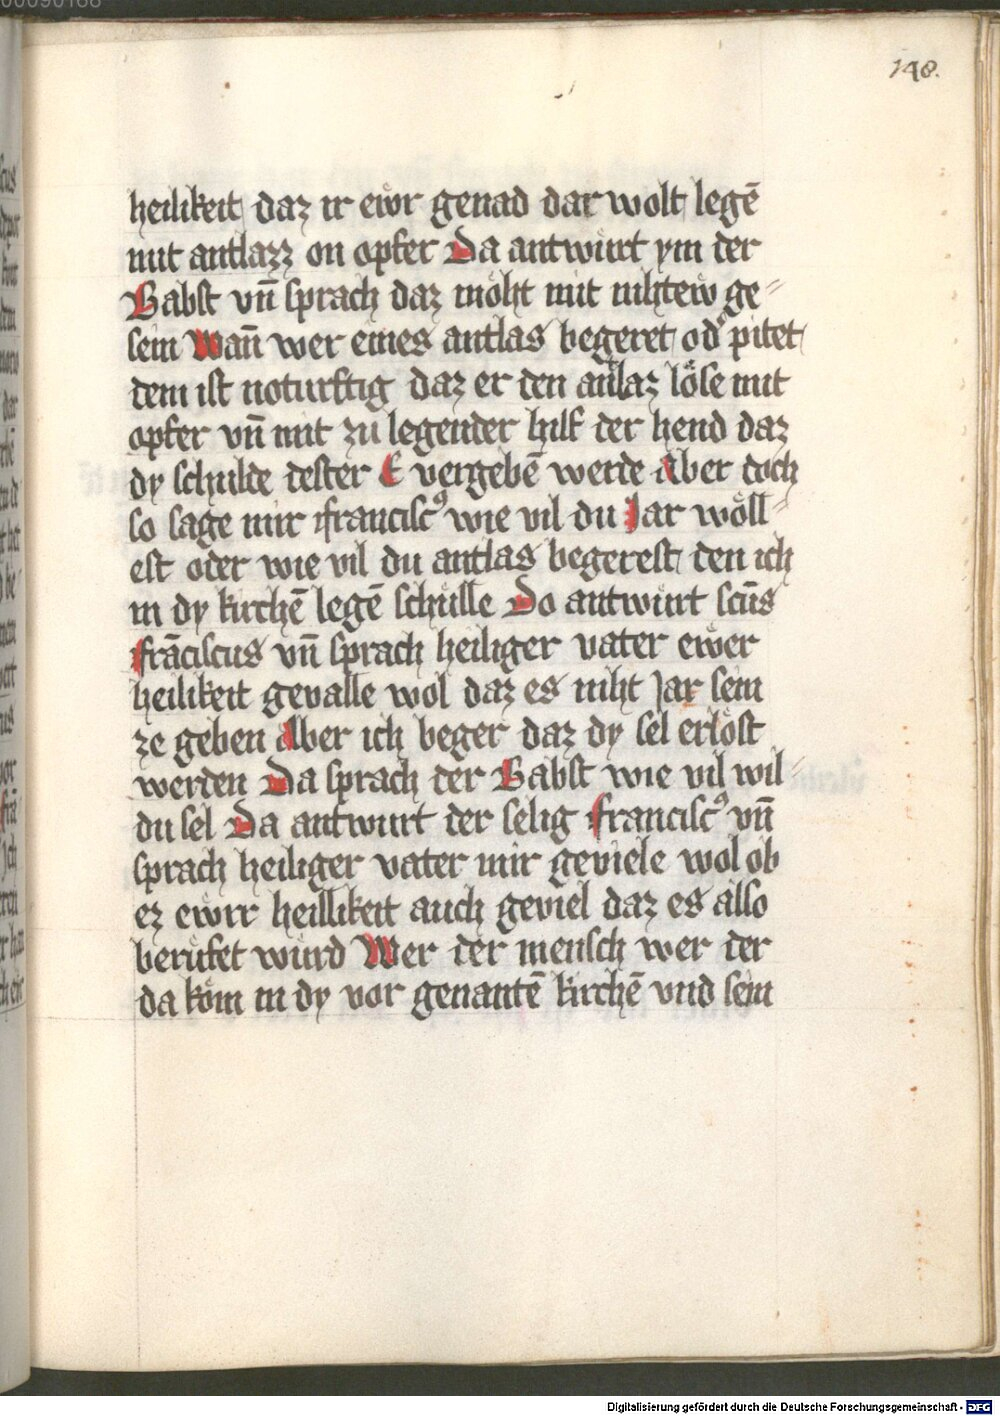 148.
heilikeit daz ir ewr genad dar wolt legē
mit antlazz on opfer Da antwürt ym der
Babst vn̄ sprach daz möht mit nihtew ge⸗
sein Wan̄ wer eines antlas begeret od' pitet
dem ist noturftig daz er den anlaz löse mit
opfer vn̄ mit zu legender hilf der hend daz
dy schulde dester E vergebē werde Aber doch
so sage mir franciscꝰ wie vil du Jar wöll⸗
est oder wie vil du antlas begerest den ich
in dy kirchē legē schülle Do antwürt scūs
frāciscus vn̄ sprach heiliger vater ewer
heilikeit geualle wol daz es niht Jar sein
ze geben Aber ich beger daz dy sel erlöst
werden Da sprach der Babst wie vil wil⸗
du sel Da antwurt der selig franciscꝰ vn̄
sprach heiliger vater mir geuiele wol ob
ez ewrr heillikeit auch geuiel daz es also
berüfet würd Wer der mensch wer der
da köm in dy vor genantē kirchē vnd sein
Digitalisierung gefördert durch die Deutsche Forschungsgemeinschaft - DFG